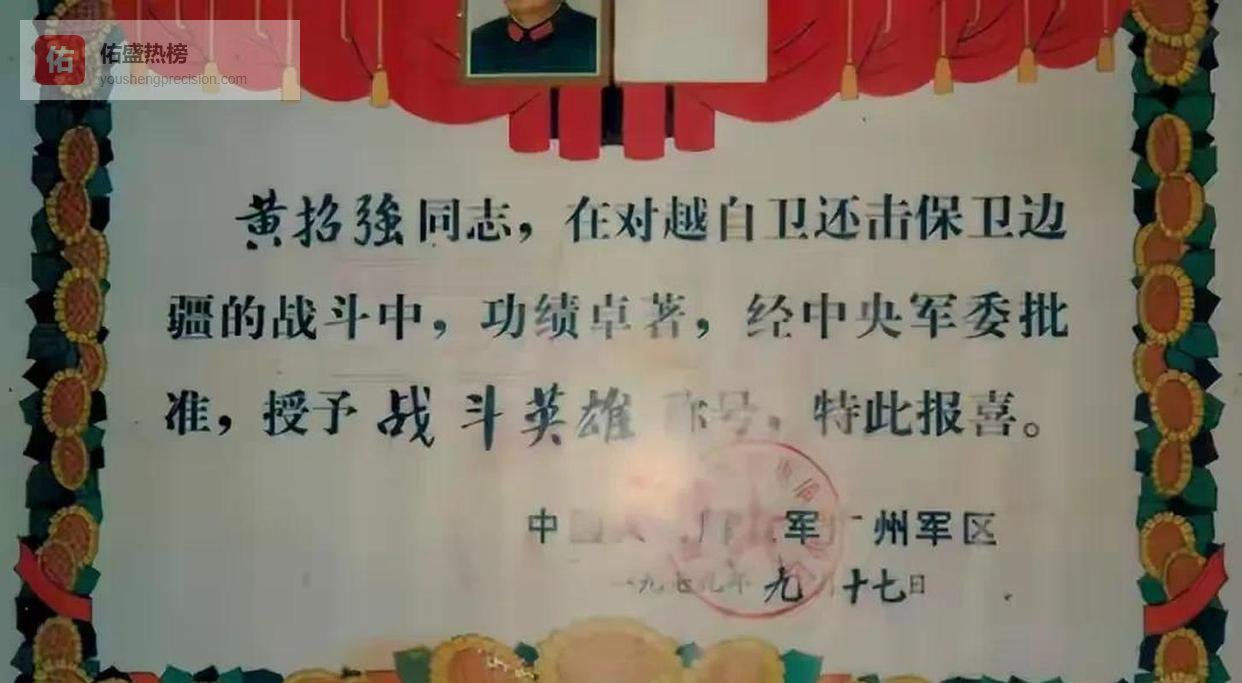 佑
佑盛热榜
youshengprecision.com
黄招強同志，在对越自卫还击保卫边
疆的战斗中，功绩卓著，经中央军委批
准，授予战斗英雄称号，特此报喜。
中国人 军广州军区
一九七九年九月十七日